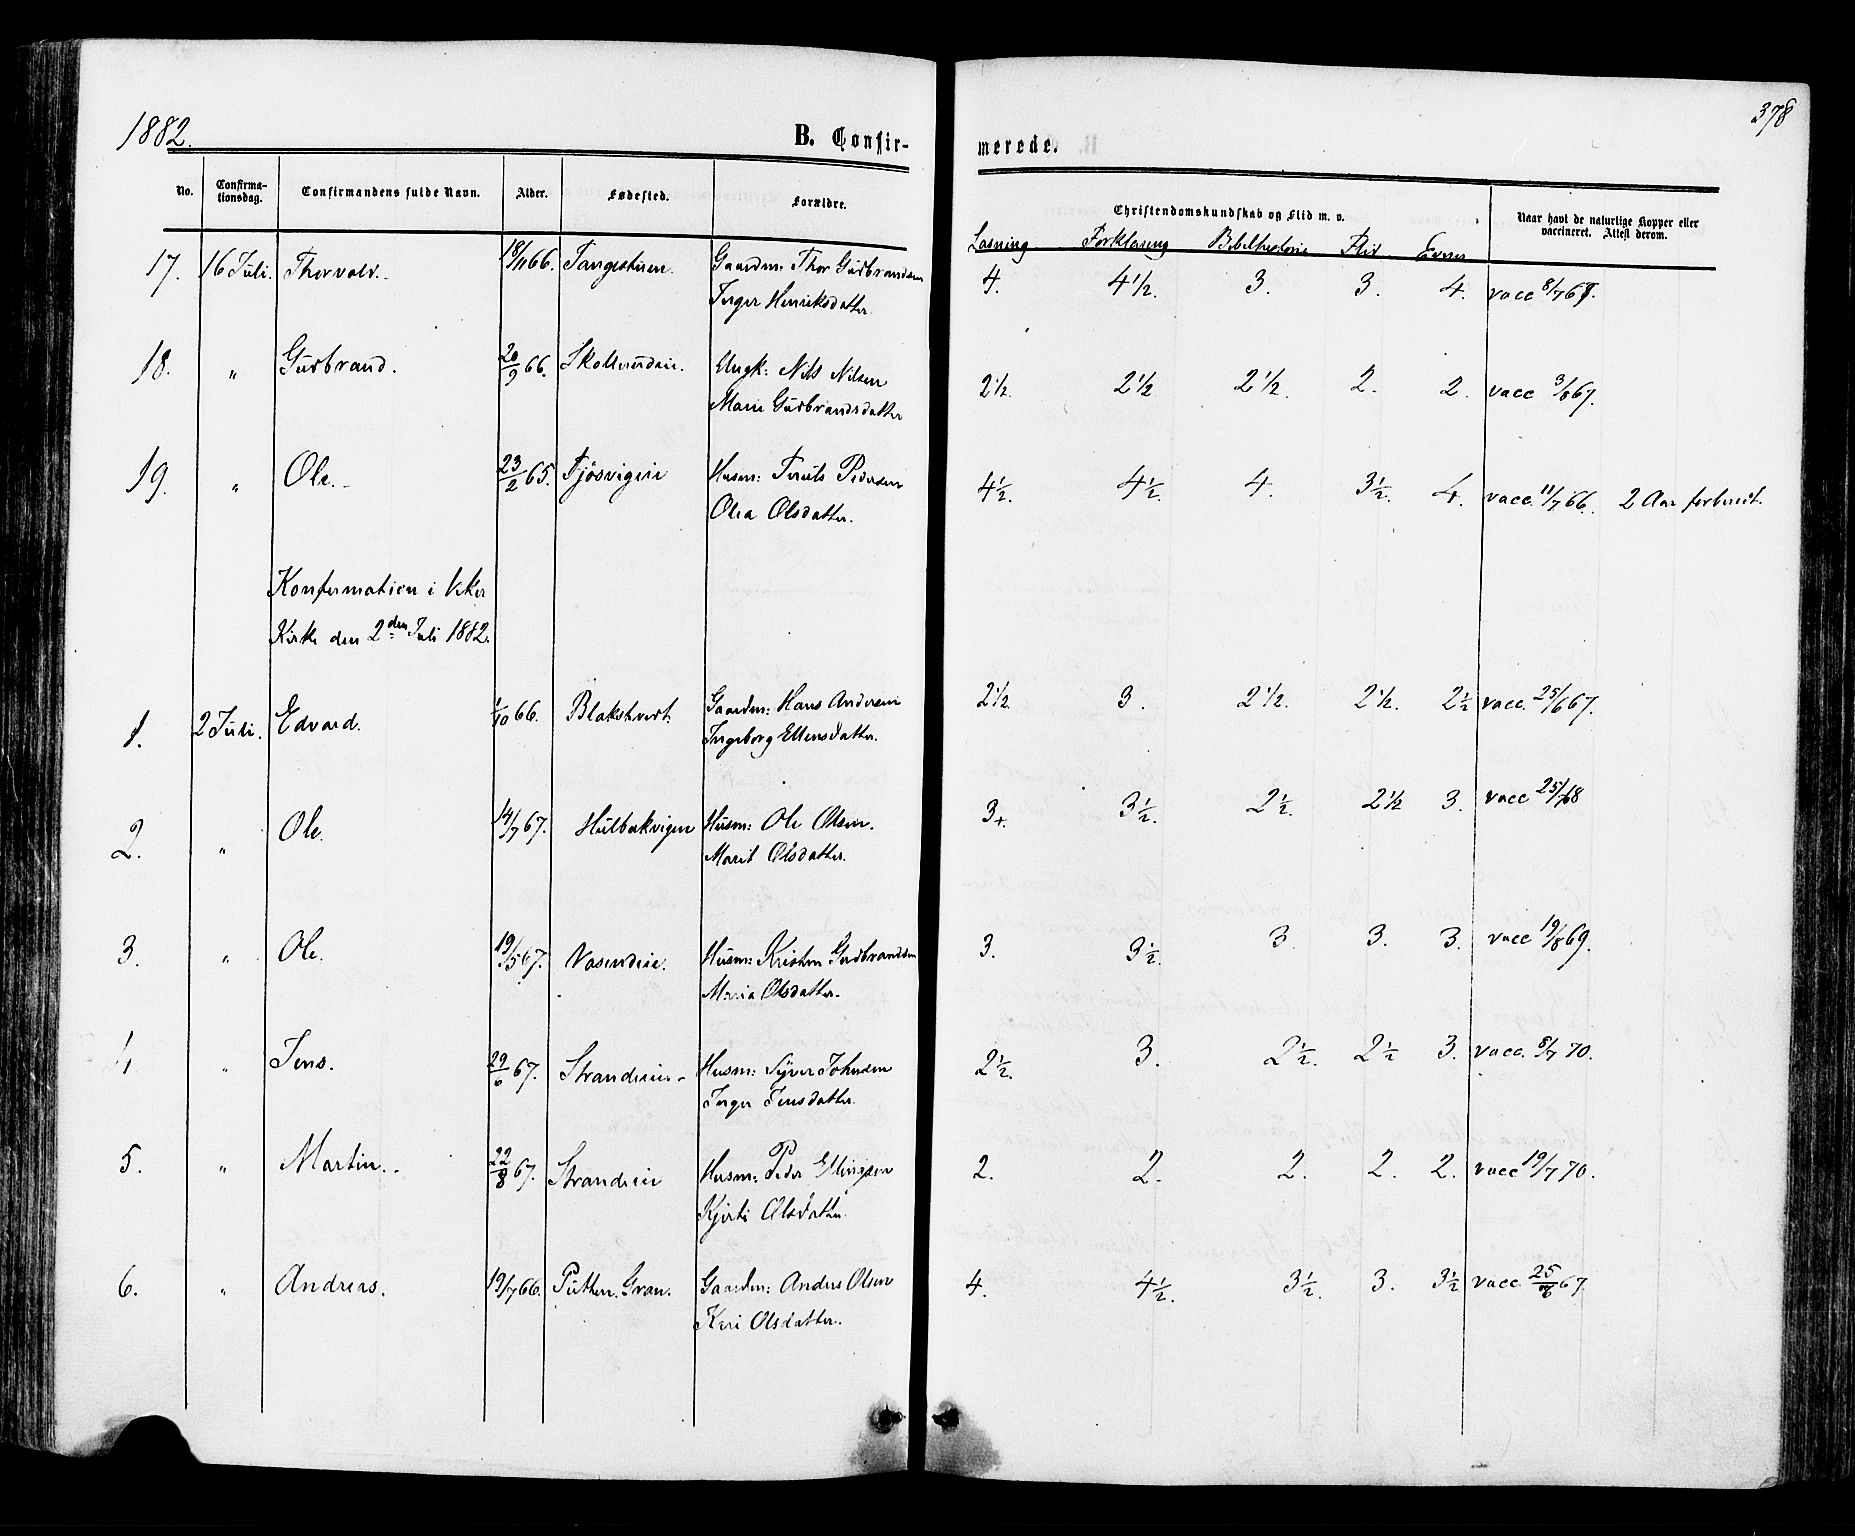 1882.
B. Confir-
merede.
378
No.
Confirma-
tionsdag.
Confirmandens fulde Navn.
Alder.
Fødested.
Forældre.
Christendomskundskab og Flid m. v.
Naar havt de naturlige Kopper eller
vaccineret. Attest derom.
Læsning Forklaring Bibelhistorie Flid Evner
17. 16 Juli. Thorvald. 18/11 66. Gaardm: Thor Gudbrandsen 4. 4½. 3. 3. 4. vacc 8/7
Inger Henriksdatter.
18. " Gudbrand. 20/9 66. Ungk: Nils Nilsen 2½. 2½ 2½. 2. 2. vacc 3/8 67.
Marie Gudbrandsdatter
19. " Ole. 23/2 65. Fjøsvigeie Husm: Truls Pedersen 4½. 4½. 4. 3½. 4. vacc. 11/7 66. 2 Aar forberedt.
Olea Olsdatter.
Konfirmation i Viker
Kirke den 2den Juli 1882.
1. 2 Juli. Edvard. /10 66. Blakstvedt Gaardm: Hans Andersen 2½ 3. 2½. 2½. 2½ vacc. 25/6 67.
Ingeborg Ellensdatter.
2. " Ole. 14/7 67. Hulbakvigen Husm: Ole Olsen. 3+. 3½. 2½. 2½ 3. vacc 25/ 68
Marit Olsdatter.
3. " Ole. 19/5 67. Vasendeie. Husm: Kristen Gudbrandsen 3. 3½. 3. 3. 3. vacc 19/8 69.
Maria Olsdatter.
4 " Jens. 29/6 67. Strandeie Husm: Syver Johnsen 2½. 3. 2½. 2½ 3. vacc. 8/7 70.
Inger Jensdatter.
5. " Martin. 22/8 67. Strandeie Husm: Peder Ellingsen 2. 2. 2. 2. 2. vacc 19/7 70.
Kjersti Olsdatter.
6. " Andreas. 19/7 66. Putten. Gran. Gaardm: Anders Olsen 4. 4½. 3½. 3. 3½ vacc. 25/6 67.
Kari Olsdatter.